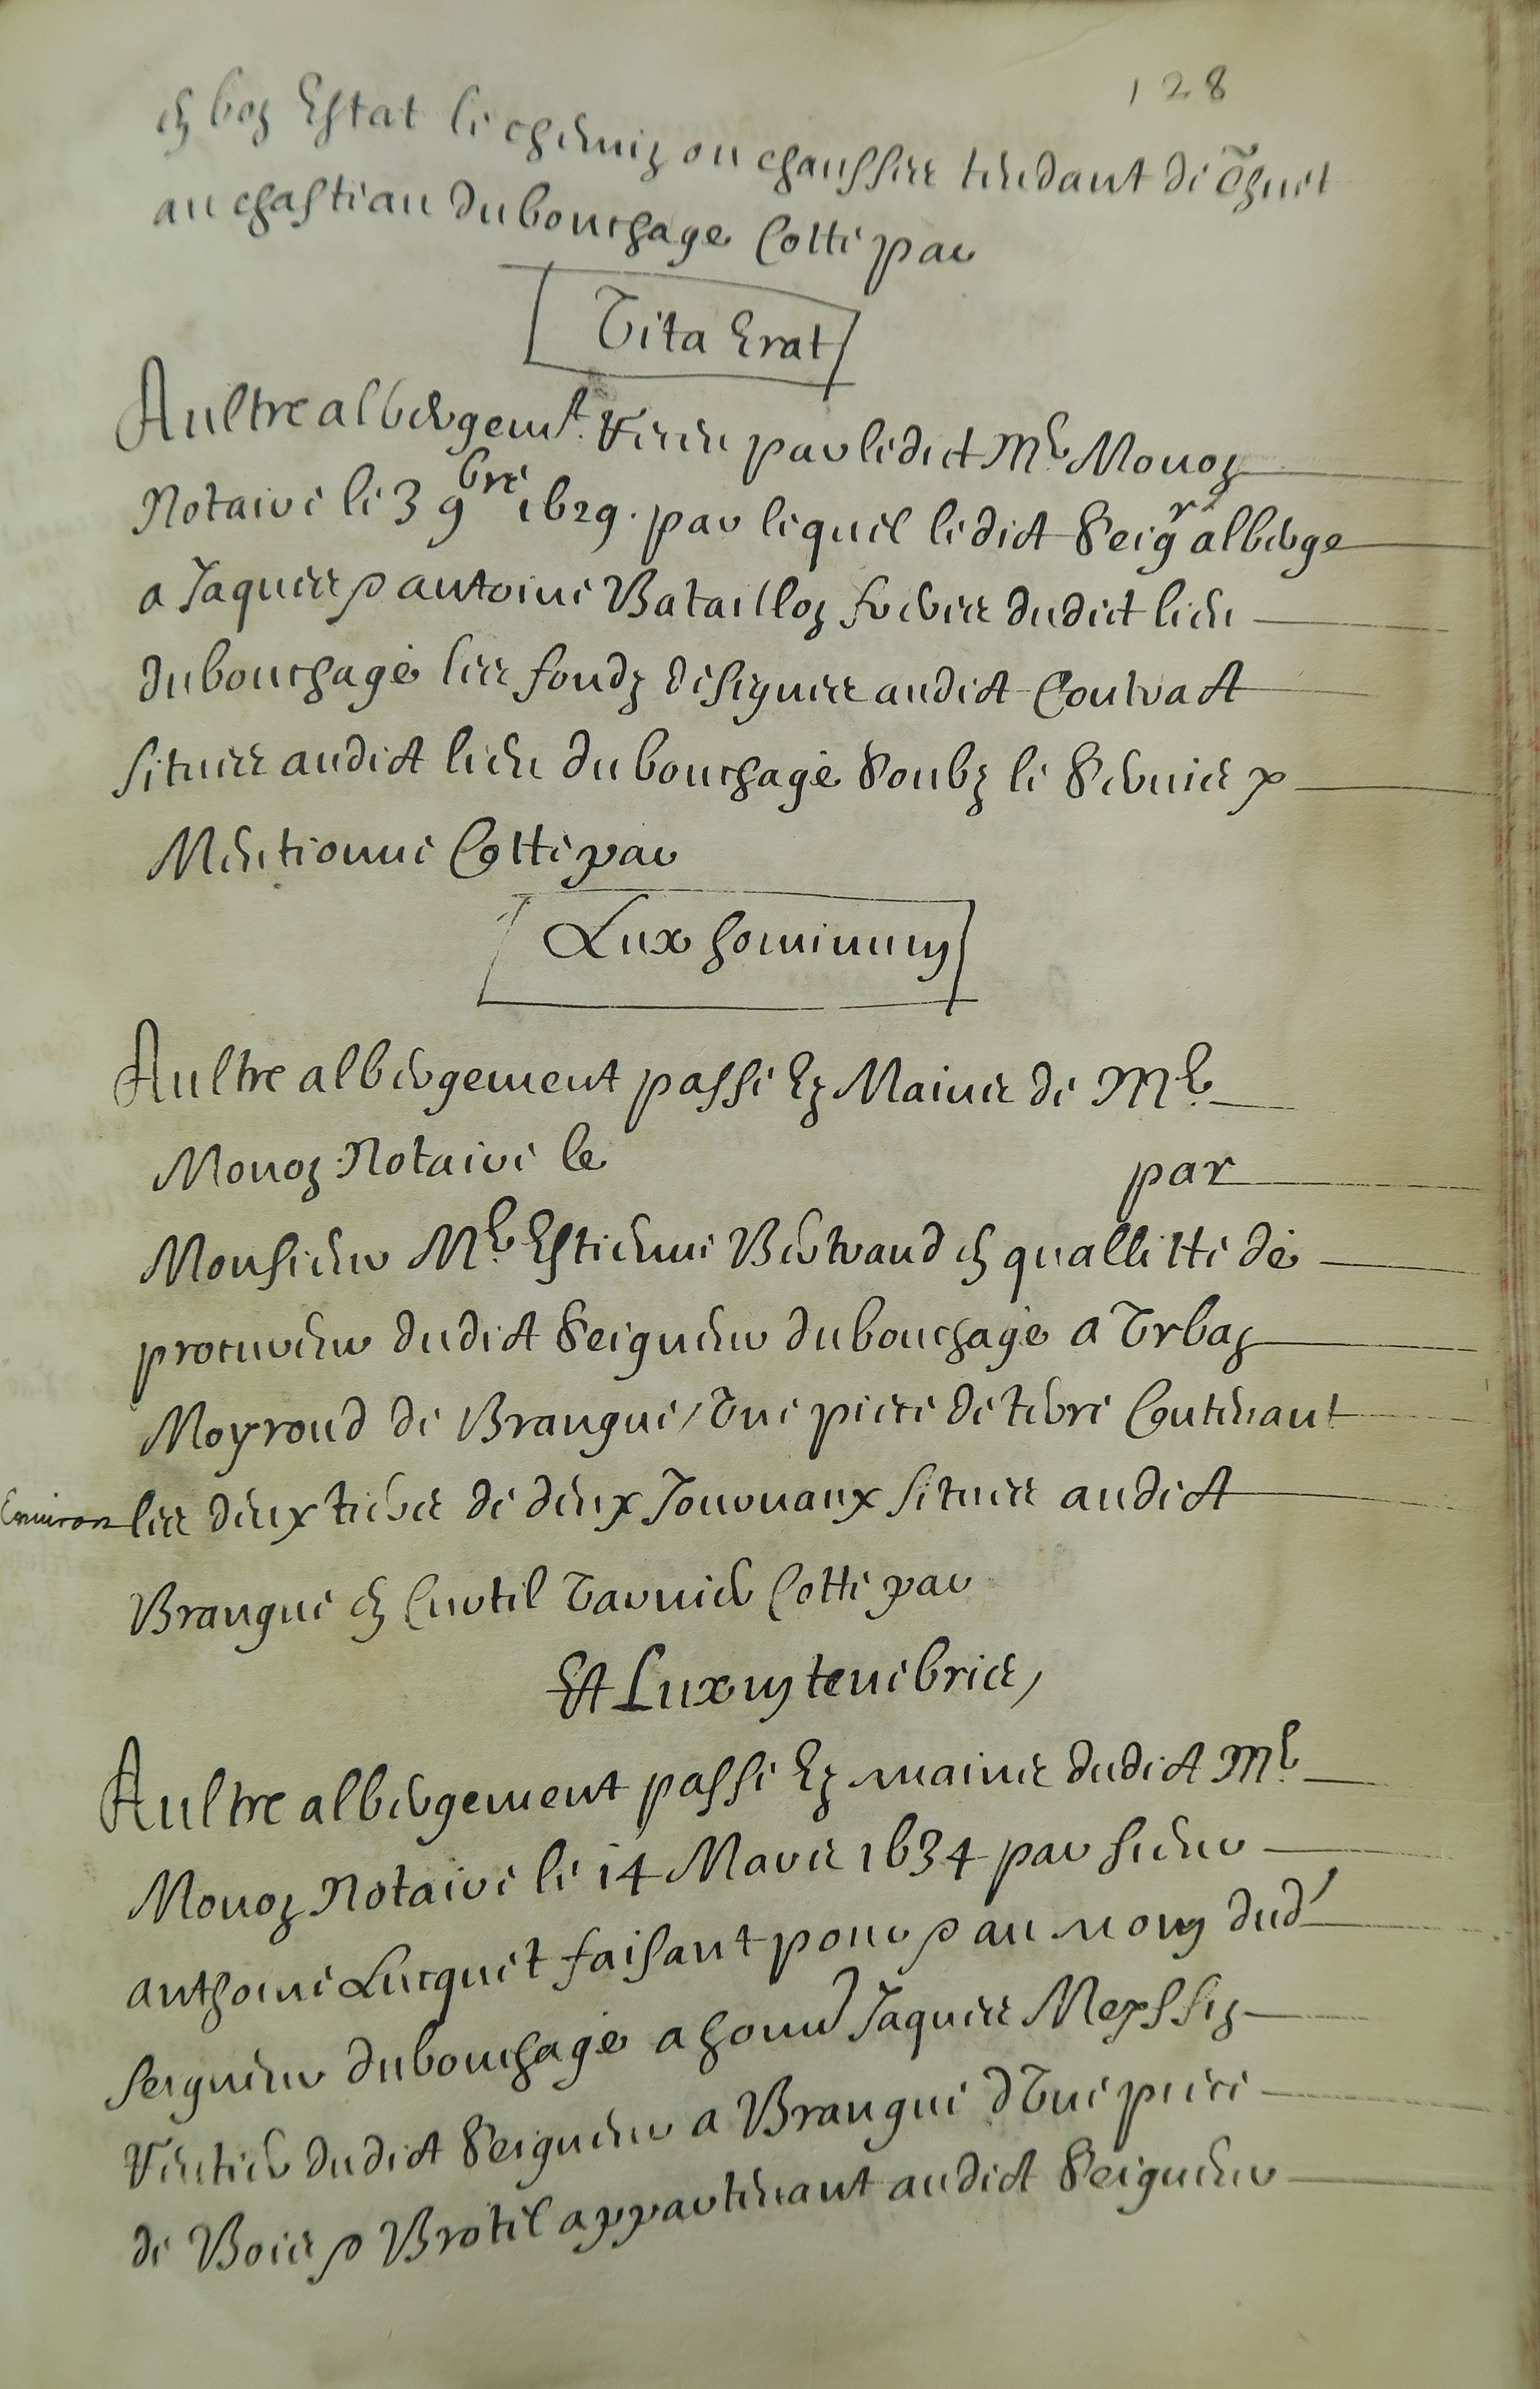 128
en bon Estat le chemin ou chaussee tendant de Thuel
au chasteau du bouchage Cotté par
Vita Erat
Aultre albergemt. receu par ledict Me Monon
Notaire le 3 9bre 1629. par lequel ledict Seigr alberge
a Jaques & antoine Bataillon freres dudict lieu
du bouchage les fondz designes audict Contract
situes audict lieu du bouchage Soubz le Servis y
Mentionné Cotté par
Lux hominum
Aultre albergement passé Ez Mains de Me
Monon Notaire le par
Monsieur Me Estienne Bertrand en quallitté de
procureur dudict Seigneur du bouchage a Urban
Moyroud de Brangue, Une piece de terre Contenant
Environ les deux tiers de deux Journaux situes audict
Brangue en Curtil Varnier Cotté par
Et Lux in tenebris,
Aultre albergement passé Ez mains dudict Me
Monon Notaire le 14 Mars 1634 par sieur
anthoine Lucquet faisant pour & au nom dud'
seigneur du bouchage a honn Jaques Meyssin
rentier dudict Seigneur a Brangue d'Une piece
de Bois & Brotel appartenant audict Seigneur